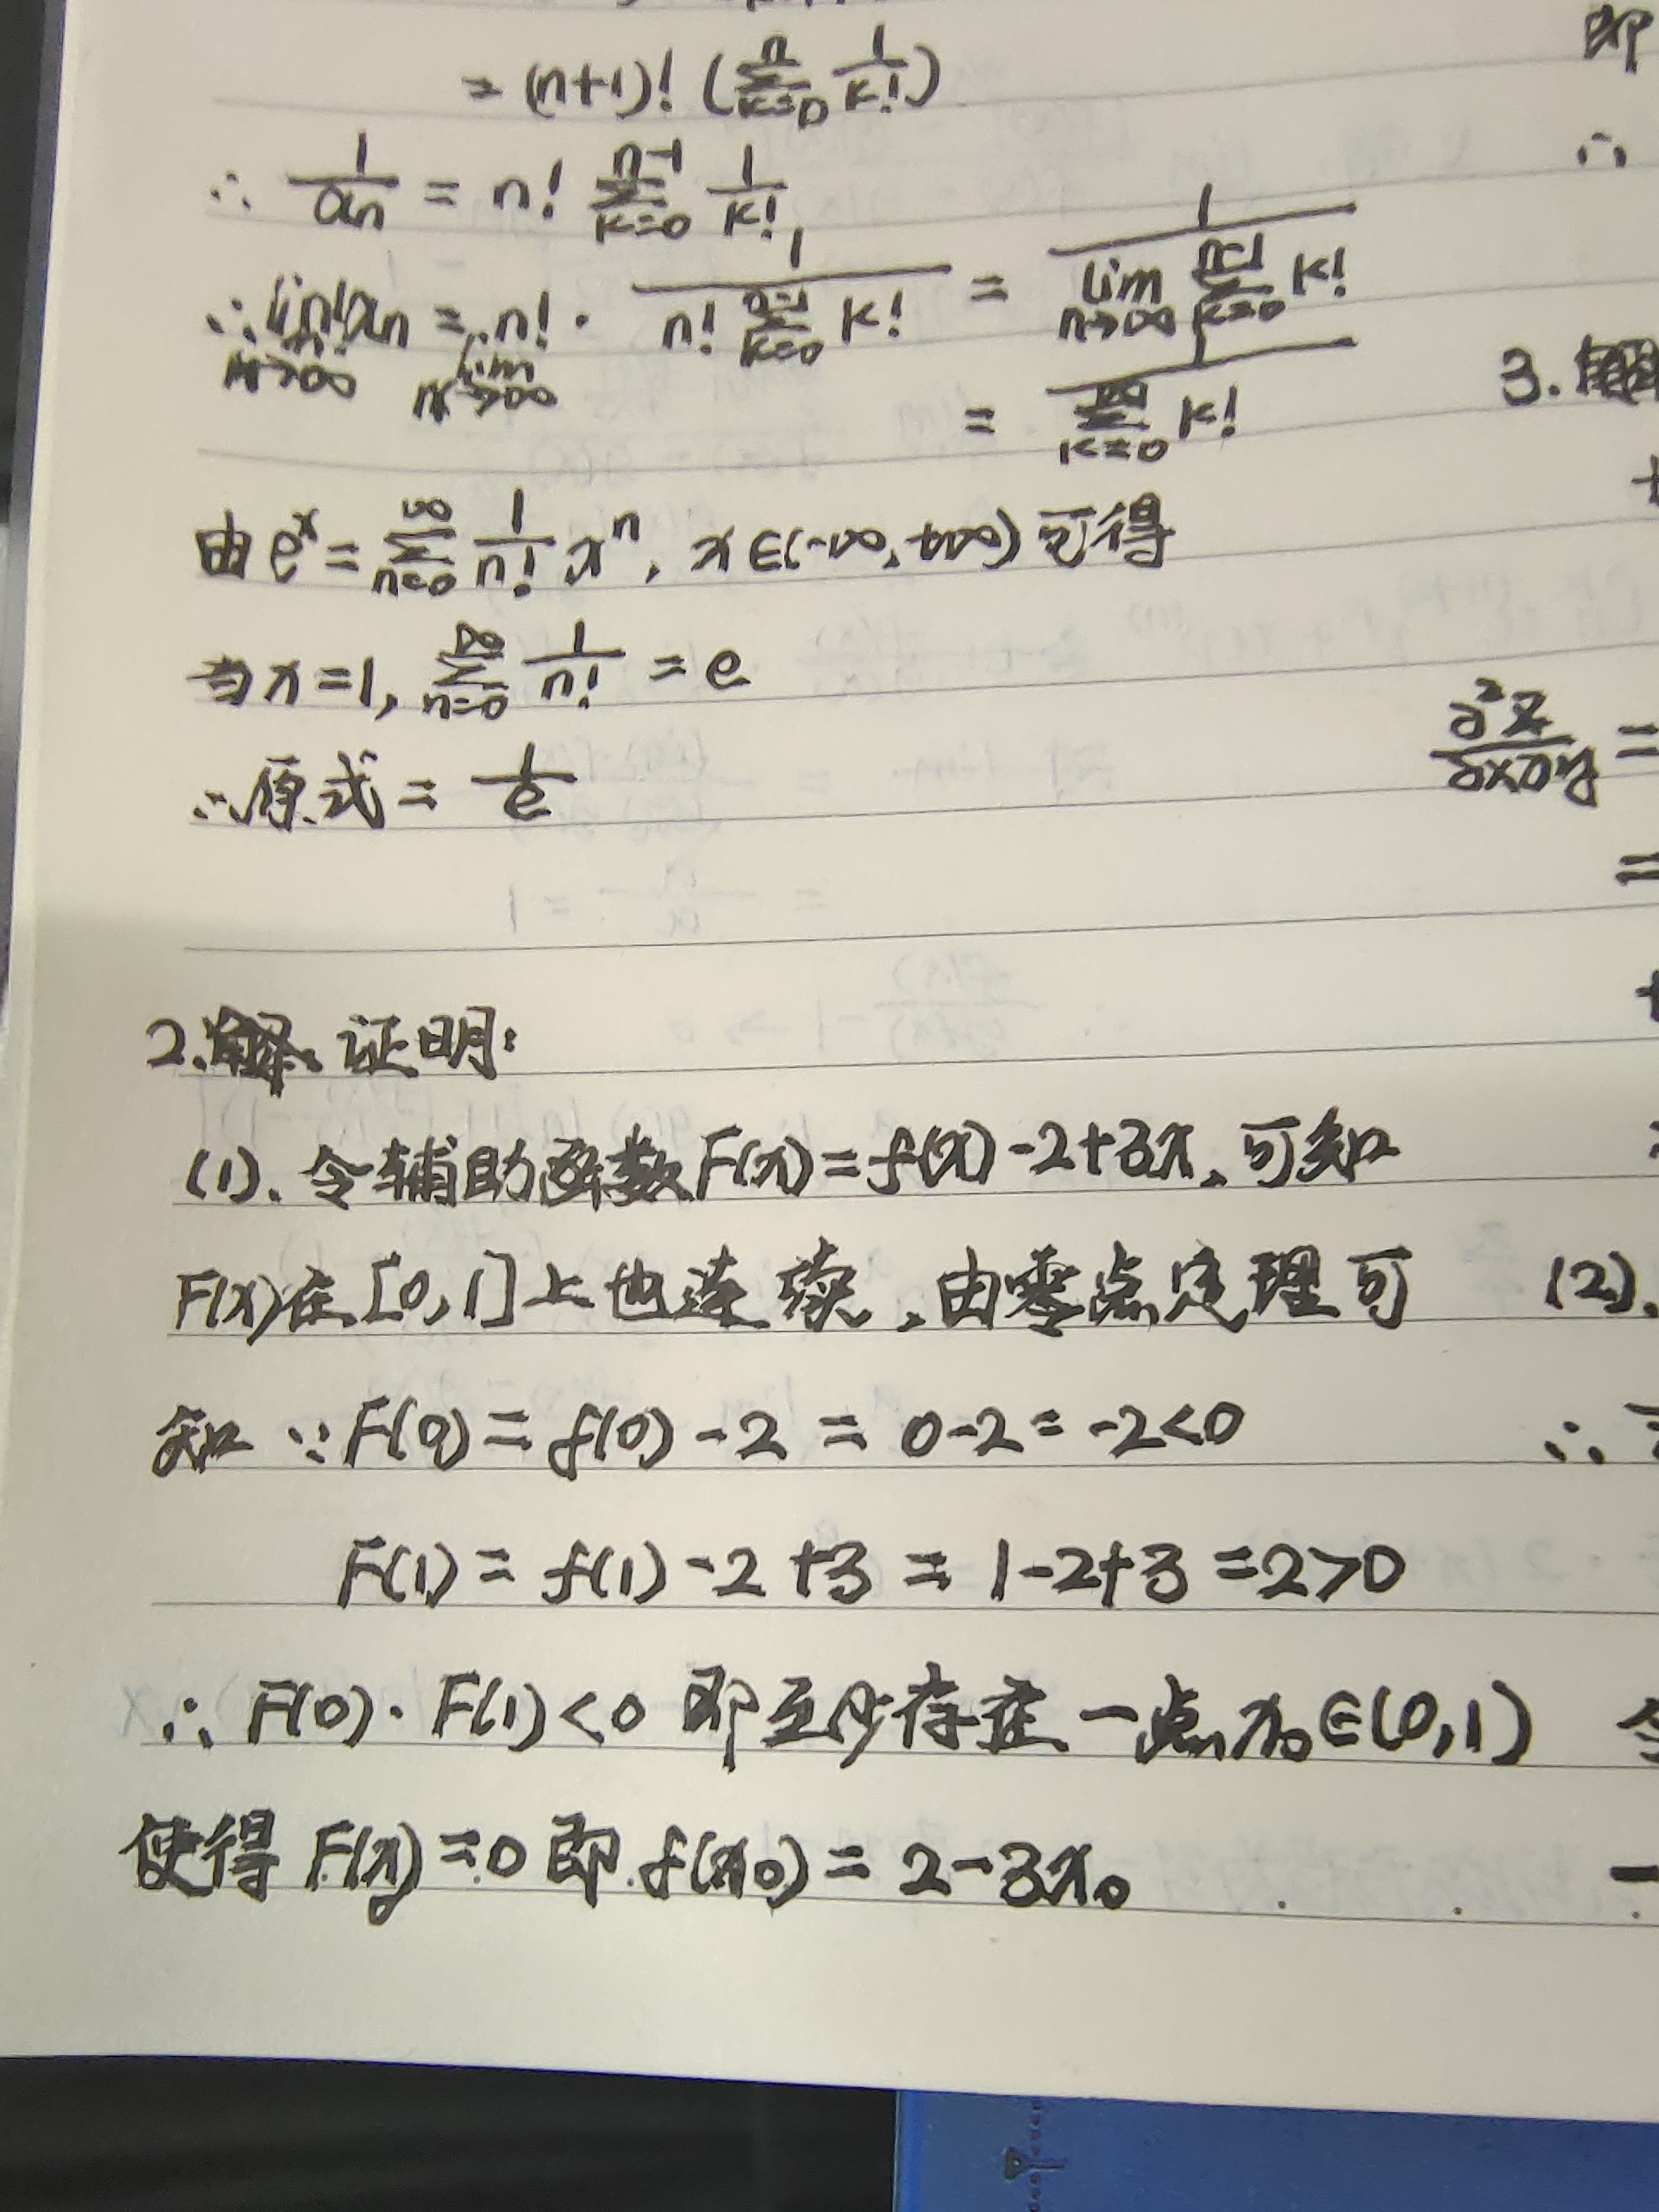 = (n+1)! (∑_{k=0}^{n} 1/k!)
∴ 1/a_n = n! ∑_{k=0}^{n-1} 1/k!
∴ lim_{n→∞} n! a_n = lim_{n→∞} n! · 1/(n! ∑_{k=0}^{n-1} k!) = 1/(lim_{n→∞} ∑_{k=0}^{n-1} k!)
= 1/(∑_{k=0}^{∞} k!)
由 e^x = ∑_{n=0}^{∞} 1/n! x^n, x∈(-∞,+∞) 可得
当 x=1, ∑_{n=0}^{∞} 1/n! = e
∴原式 = 1/e
2. 证明:
(1). 令辅助函数 F(x) = f(x) -2+3x, 可知
F(x)在[0,1]上也连续, 由零点定理可
知 ∵ F(0) = f(0) - 2 = 0-2 = -2<0
F(1) = f(1) -2 +3 = 1-2+3 =2>0
∴ F(0)·F(1)<0 即至少存在一点x₀∈(0,1)
使得 F(x₀)=0 即 f(x₀) = 2-3x₀
即
∴
3.
∂²z/∂x∂y =
=
+
(2).
∴
令